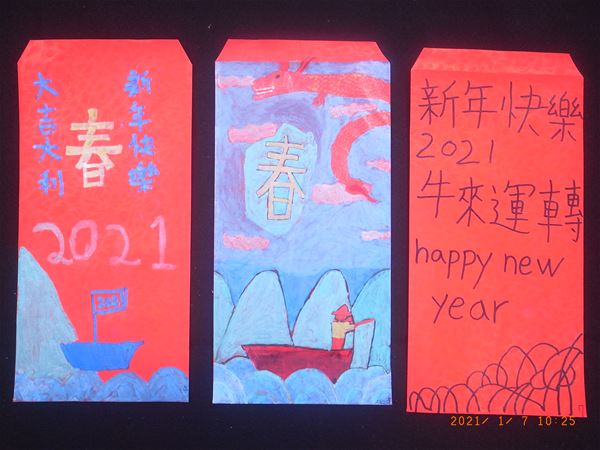 新年快樂
大吉大利
春
2021
2021
春
新年快樂
2021
牛來運轉
happy new
year
2021/ 1/ 7 10:25